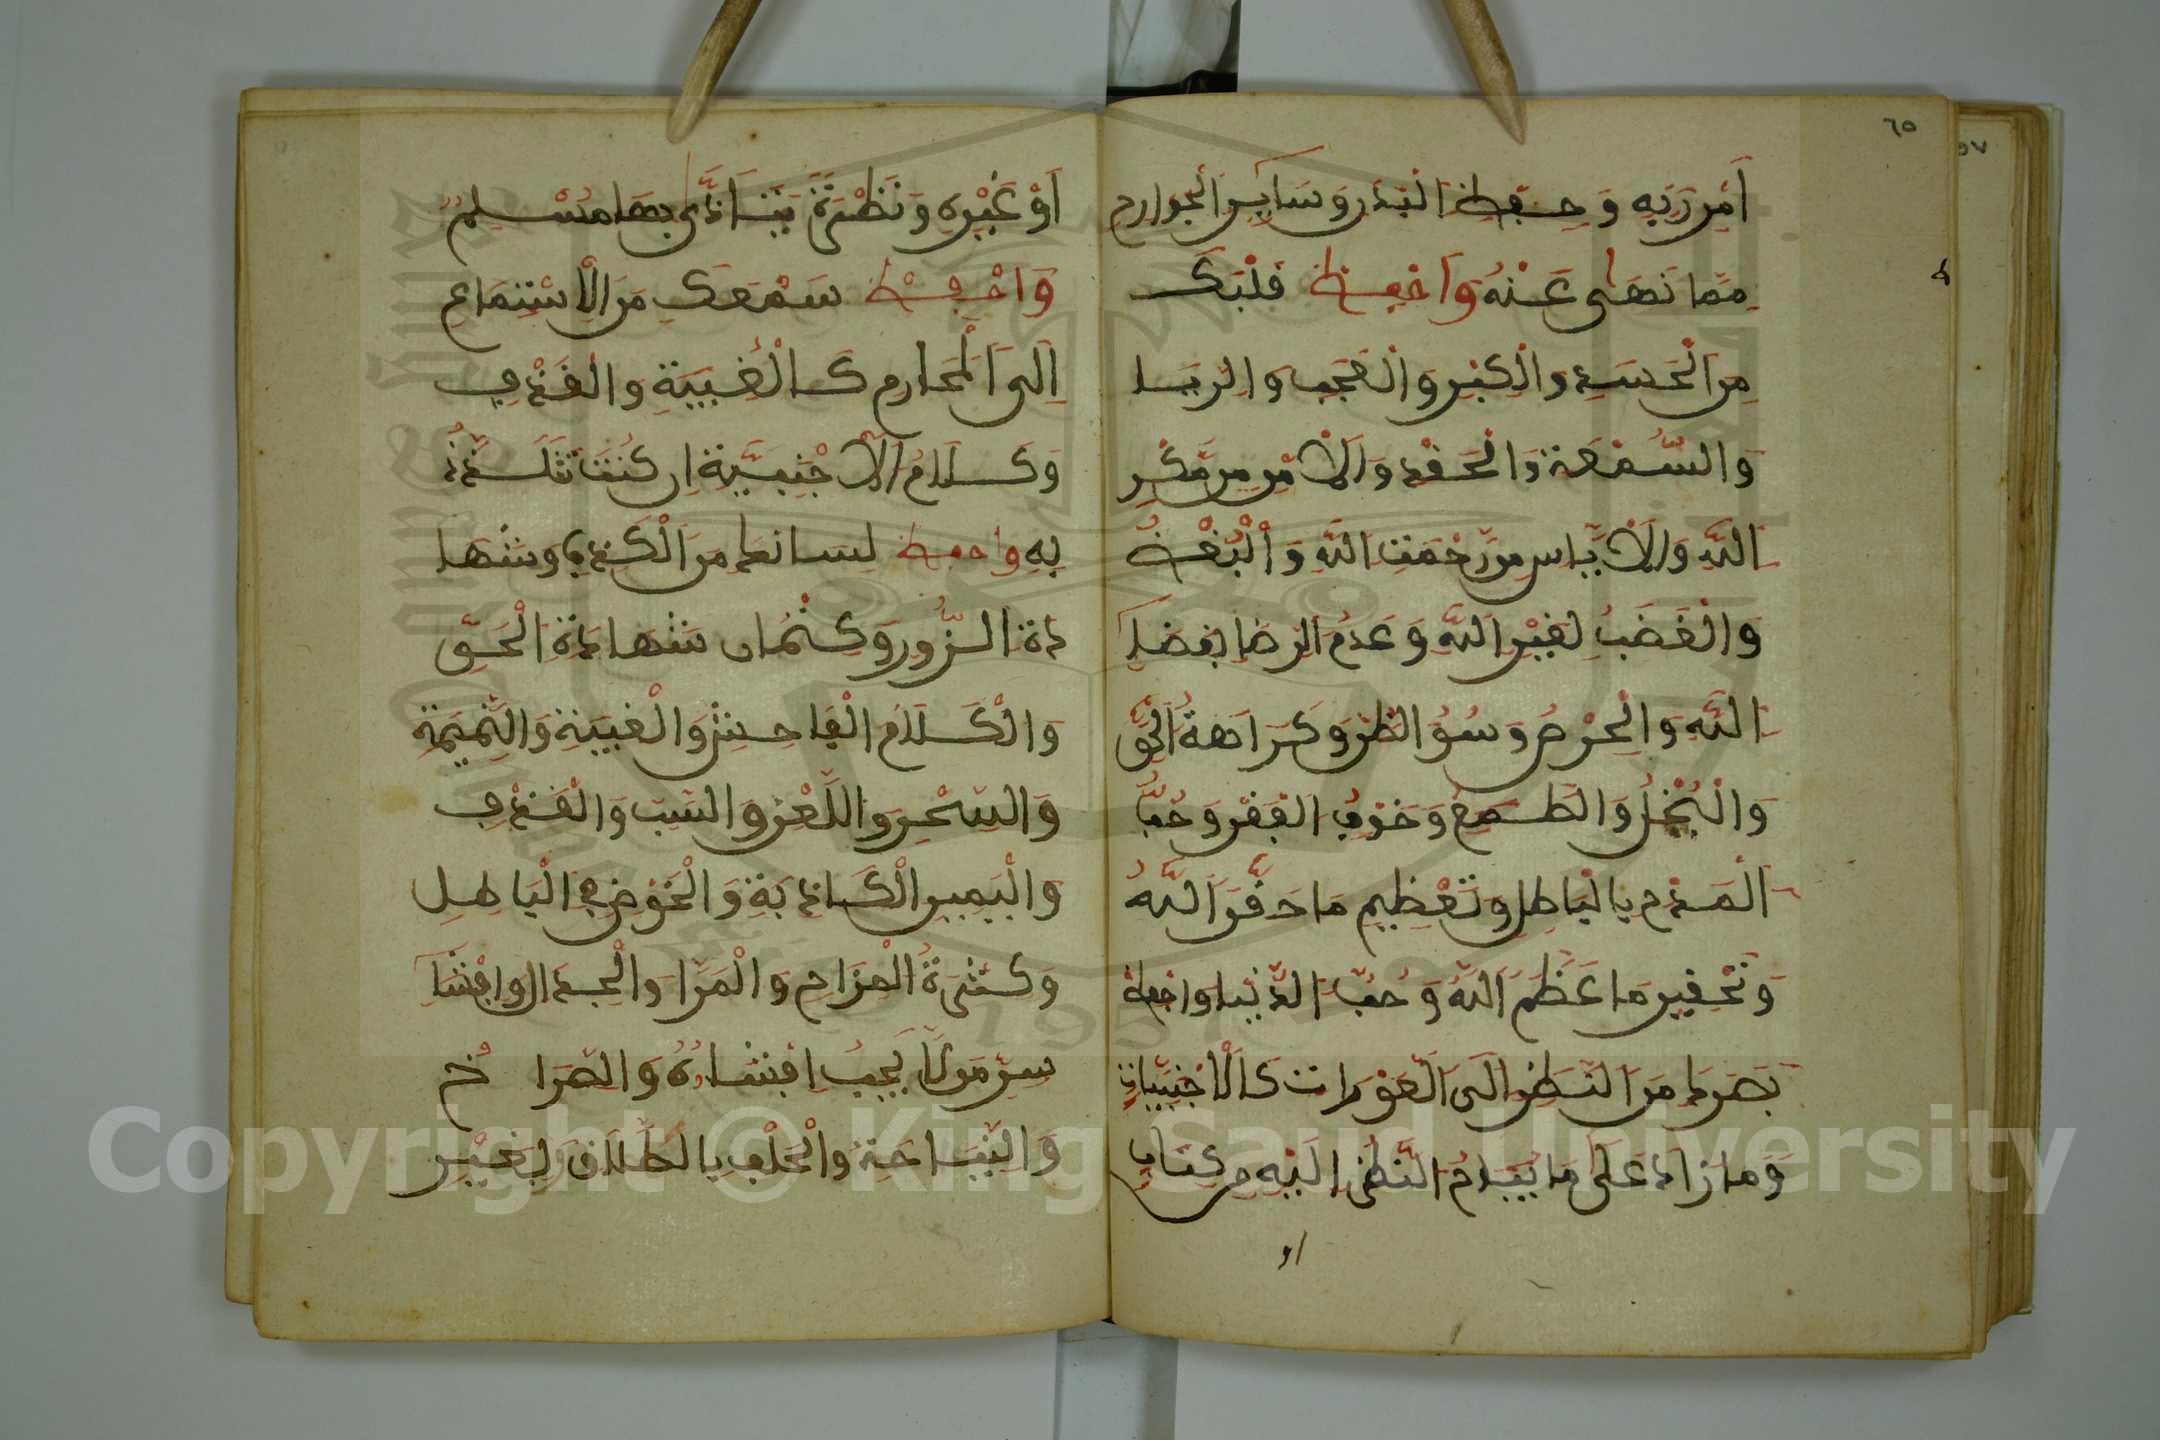 ٦٥
٥٧
أمر ربه وحفظ البدن وساير الجوارح
مما نهى عنه واحفظ قلبك
من الحسد والكبر والعجب والريا
والسمعة والحقد والأمن من مكر
الله والاياس من رحمت الله والبغض
والغضب لغير الله وعدم الرضا بقضا
الله والحرص وسوء الظن وكراهة الحق
والبخل والطمع وخوف الفقر وحب
المدح بالباطل وتعظيم ما حقر الله
وتحقير ما عظم الله وحب الدنيا واحفظ
بصرك من النظر إلى العورات كالأجنبيات
وما زاد على ما يباح النظر إليه من كتاب
او
أو غيره ونظرة يتأذى بها مسلم
واحفظ سمعك من الاستماع
إلى المحارم كالغيبة والقذف
وكلام الأجنبية إن كنت تتلذذ
به واحفظ لسانك من الكذب وشها
دة الزور وكتمان شهادة الحق
والكلام الفاحش والغيبة والنميمة
والسحر واللعن والسب والقذف
واليمين الكاذبة والخوض في الباطل
وكثرة المزاح والمرا والجدال وافشا
سر من لا يجب افشاؤه والصراخ
والنياحة والحلف بالطلاق لغير
Copyright © King Saud University